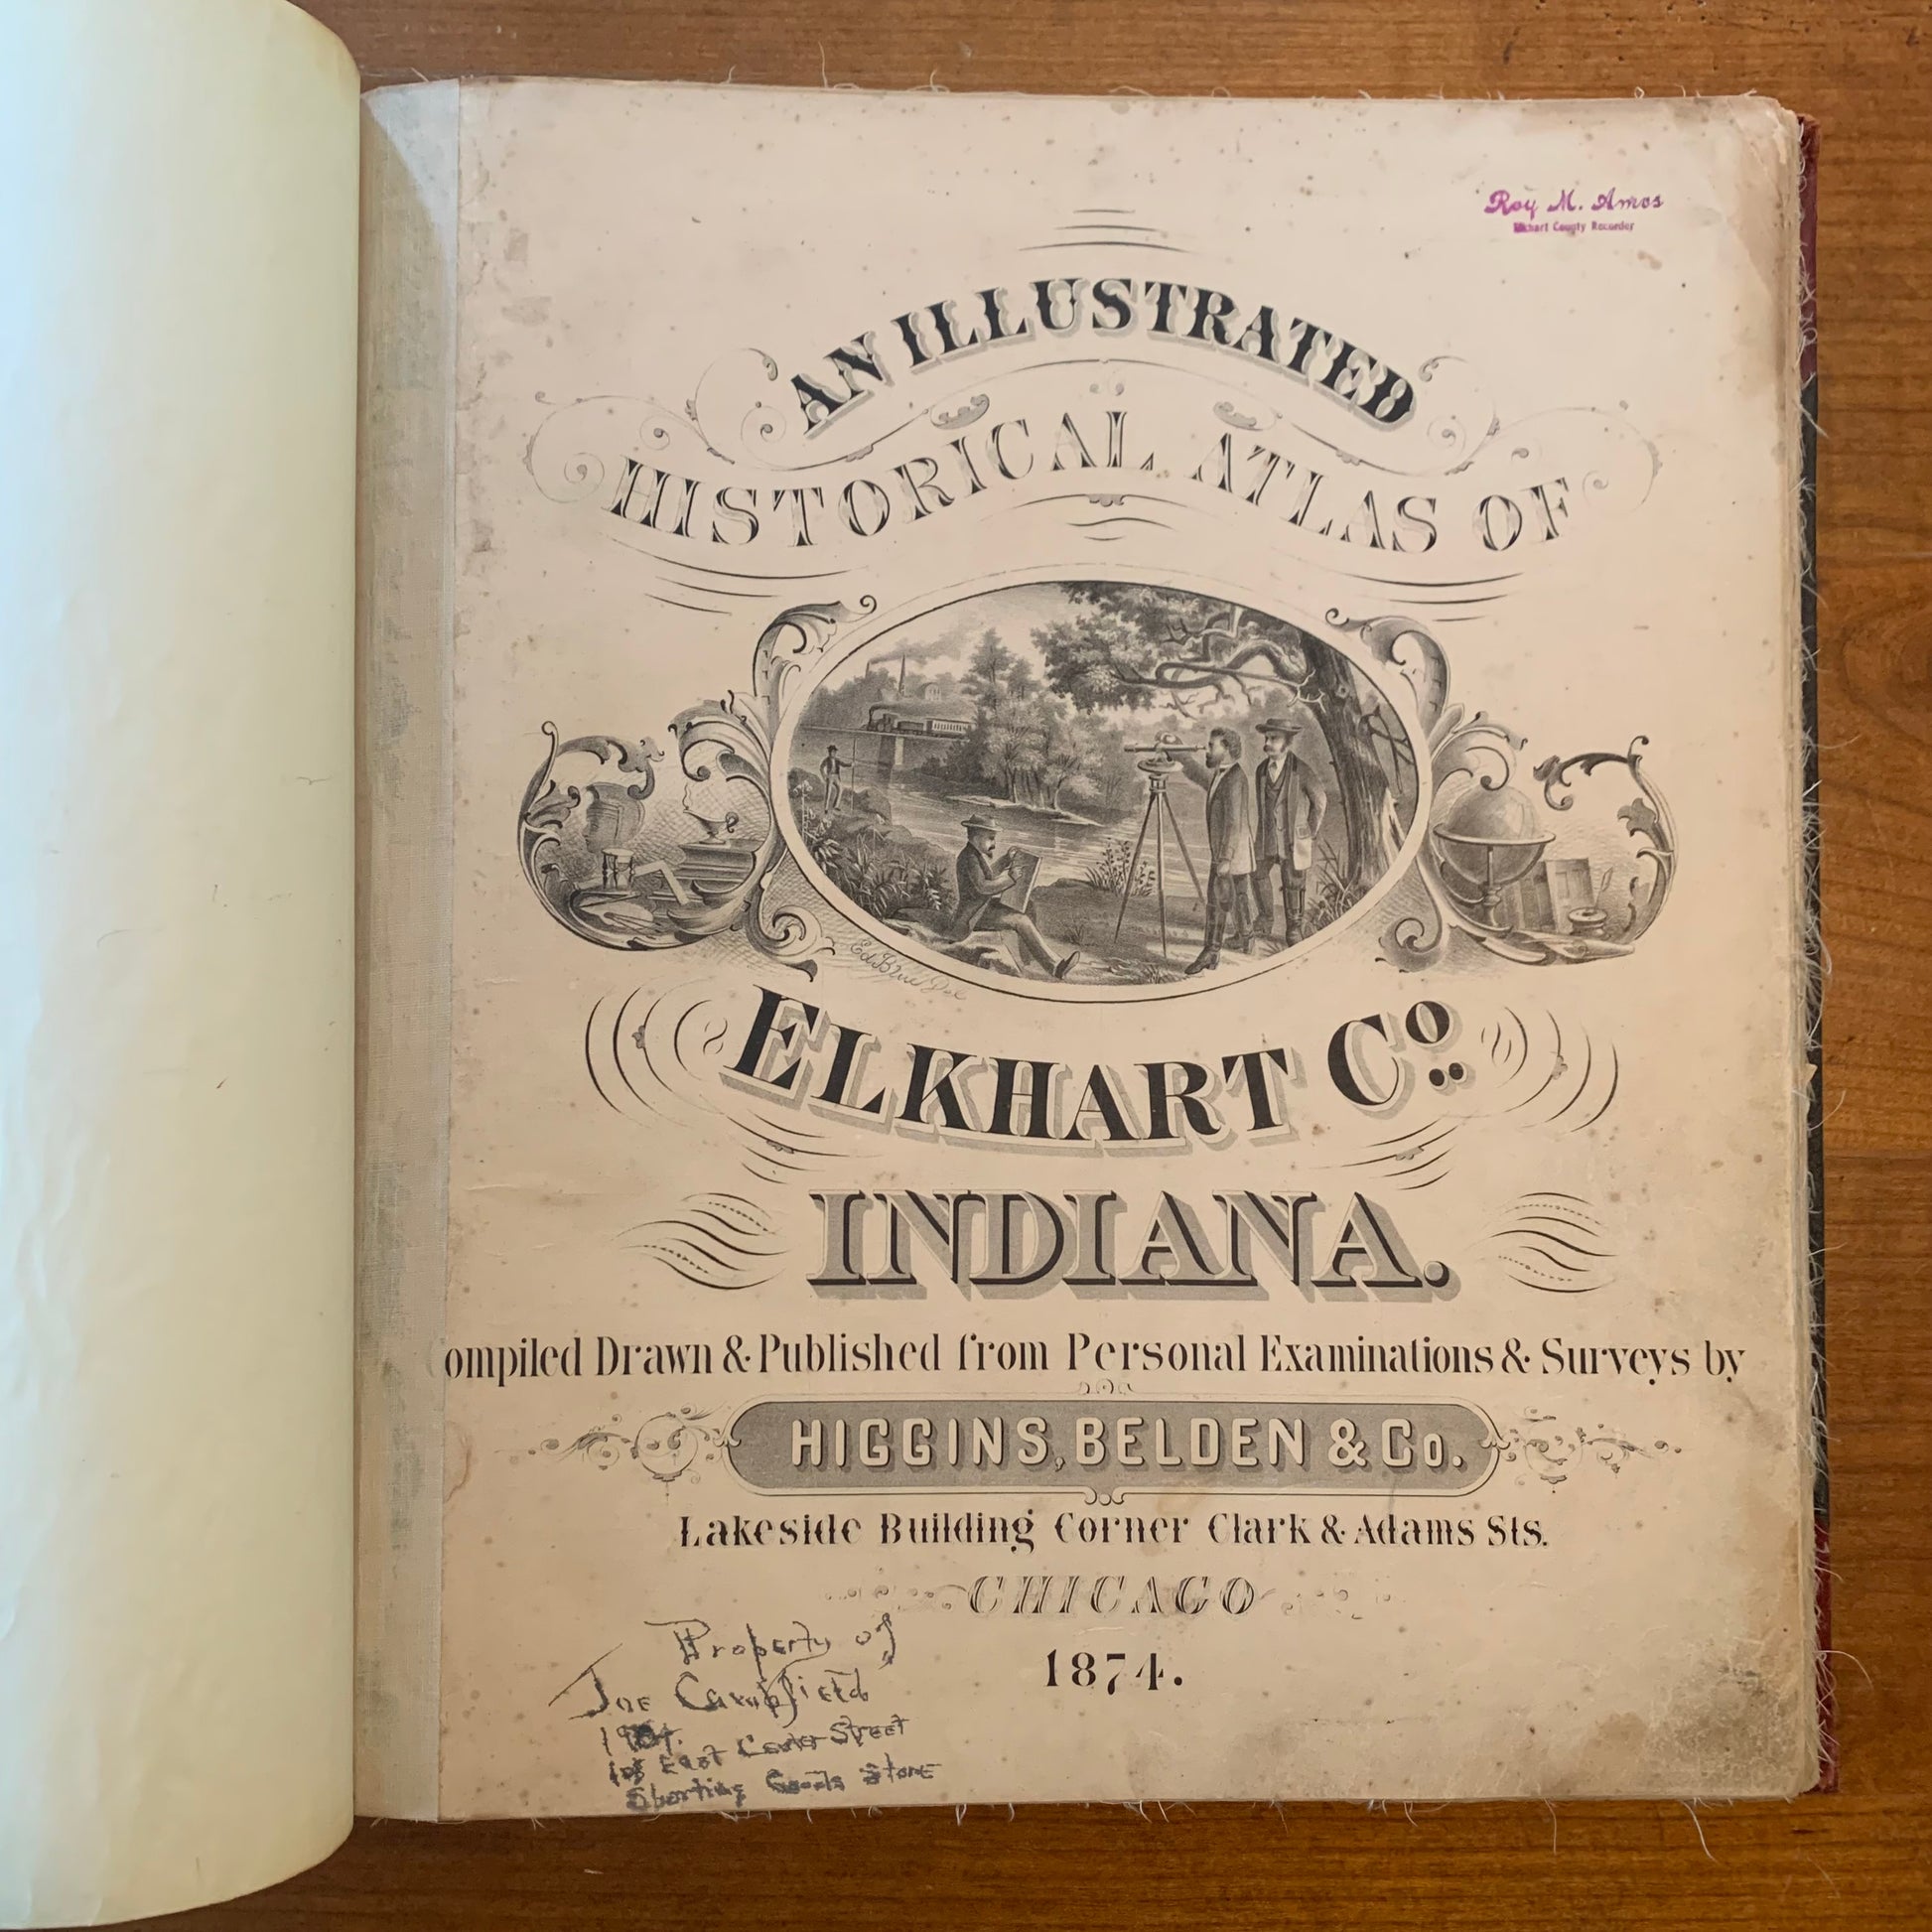 Roy M. Amos
Elkhart County Recorder
AN ILLUSTRATED
HISTORICAL ATLAS OF
Ed Blue Del
ELKHART Co.
INDIANA.
ompiled Drawn & Published from Personal Examinations & Surveys by
HIGGINS, BELDEN & Co.
Lakeside Building Corner Clark & Adams Sts.
CHICAGO
1874.
Property of
Joe Canfield
East Street
Sporting Goods Store